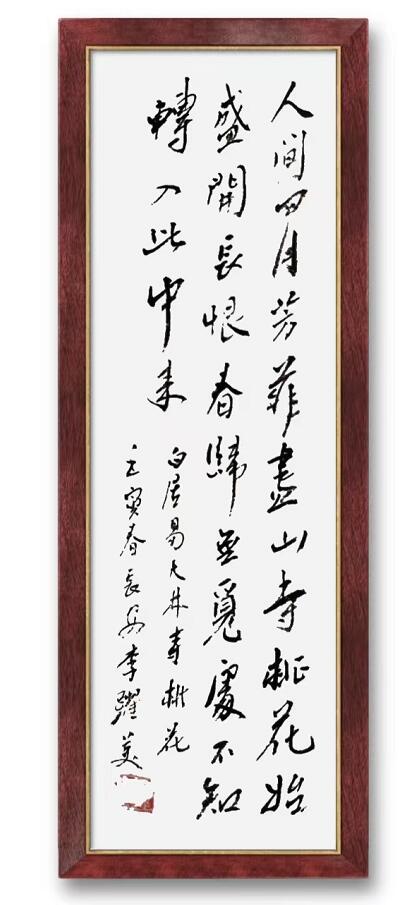 人间四月芳菲盡山寺桃花始
盛開長恨春歸無覓處不知
轉入此中来
白居易大林寺桃花
壬寅春長安李躍美